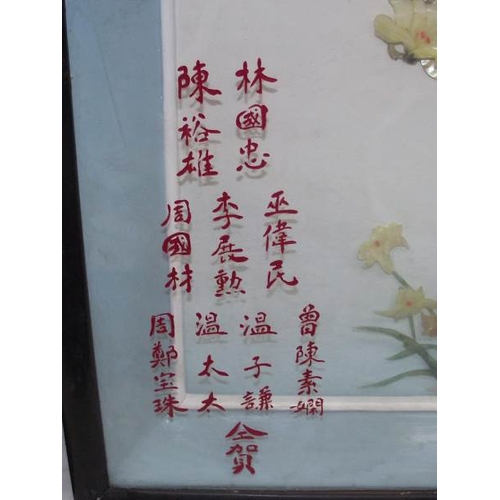 林國忠
陳裕雄
巫偉民
李展勲
周國材
曾陳素嫻
溫子謙
溫太太
周鄭宝珠
仝賀